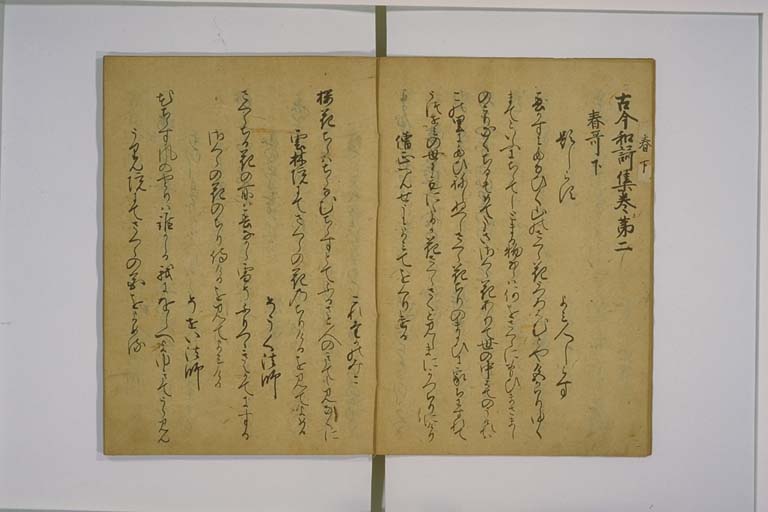 春下
古今和謌集巻第二
春哥下
題しらす
よみ人しらす
春かすみたなひく山のさくら花うつろはむとや色かはりゆく
まてといふにちらてしとまる物ならは何をさくらにおもひまさまし
のこりなくちるそめてたきさくら花ありて世の中はてのうけれは
この里にたひねしぬへしさくら花ちりのまかひに家ちわすれて
うつせみの世にもにたるか花さくらさくと見しまにかつちりにけり
僧正へんせうによみてをくりける
これたかのみこ
桜花ちらはちらなむちらすとてふるさと人のきても見なくに
雲林院にてさくらの花のちりけるを見てよめる
そうく法師
さくらちる花の所は春なから雪そふりつゝきえかてにする
さくらの花のちり侍けるを見てよみける
そせい法師
花ちらす風のやとりは誰かしる我にをしへよ行てうらみん
うりん院にてさくらの花をよめる